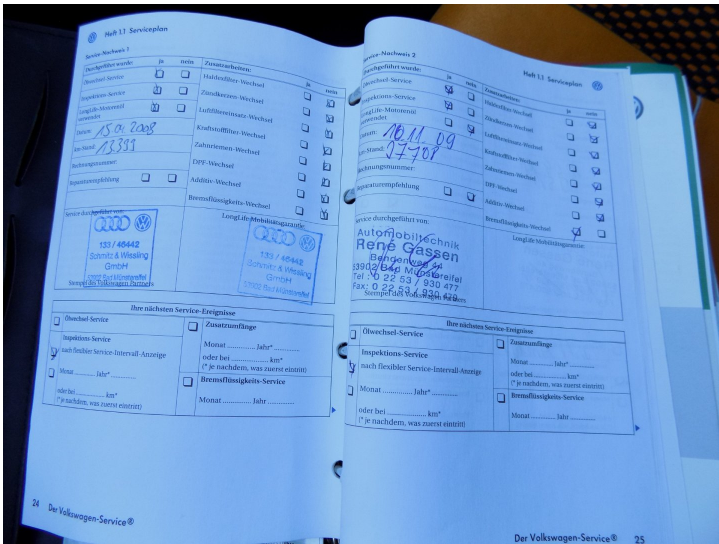 Heft 1.1 Serviceplan
Service-Nachweis 1
Durchgeführt wurde: ja nein
Ölwechsel-Service
Inspektions-Service
LongLife-Motorenöl
verwendet
Datum: 15.04.2008
km-Stand: 13.333
Rechnungsnummer:
Reparaturempfehlung
Zusatzarbeiten: ja nein
Haldexfilter-Wechsel
Zündkerzen-Wechsel
Luftfiltereinsatz-Wechsel
Kraftstofffilter-Wechsel
Zahnriemen-Wechsel
DPF-Wechsel
Additiv-Wechsel
Bremsflüssigkeits-Wechsel
Service durchgeführt von:
133 / 46442
Schmitz & Wessling
GmbH
53902 Bad Münstereifel
Stempel des Volkswagen Partners
LongLife Mobilitätsgarantie:
133 / 46442
Schmitz & Wessling
GmbH
53902 Bad Münstereifel
Ihre nächsten Service-Ereignisse
Ölwechsel-Service
Inspektions-Service
nach flexibler Service-Intervall-Anzeige
Monat ............ Jahr*............
oder bei ............ km*
(* je nachdem, was zuerst eintritt)
Zusatzumfänge
Monat ............ Jahr*............
oder bei ............ km*
(* je nachdem, was zuerst eintritt)
Bremsflüssigkeits-Service
Monat ............ Jahr ............
24 Der Volkswagen-Service®
Heft 1.1 Serviceplan
Service-Nachweis 2
Durchgeführt wurde: ja nein
Ölwechsel-Service
Inspektions-Service
LongLife-Motorenöl
verwendet
Datum: 10.11.09
km-Stand: 27708
Rechnungsnummer:
Reparaturempfehlung
Zusatzarbeiten: ja nein
Haldexfilter-Wechsel
Zündkerzen-Wechsel
Luftfiltereinsatz-Wechsel
Kraftstofffilter-Wechsel
Zahnriemen-Wechsel
DPF-Wechsel
Additiv-Wechsel
Bremsflüssigkeits-Wechsel
Service durchgeführt von:
Automobiltechnik
René Gassen
Bendenweg 44
53902 Bad Münstereifel
Tel : 0 22 53 / 930 477
Fax: 0 22 53 / 930 479
Stempel des Volkswagen Partners
LongLife Mobilitätsgarantie:
Ihre nächsten Service-Ereignisse
Ölwechsel-Service
Inspektions-Service
nach flexibler Service-Intervall-Anzeige
Monat ............ Jahr*............
oder bei ............ km*
(* je nachdem, was zuerst eintritt)
Zusatzumfänge
Monat ............ Jahr*............
oder bei ............ km*
(* je nachdem, was zuerst eintritt)
Bremsflüssigkeits-Service
Monat ............ Jahr ............
Der Volkswagen-Service® 25